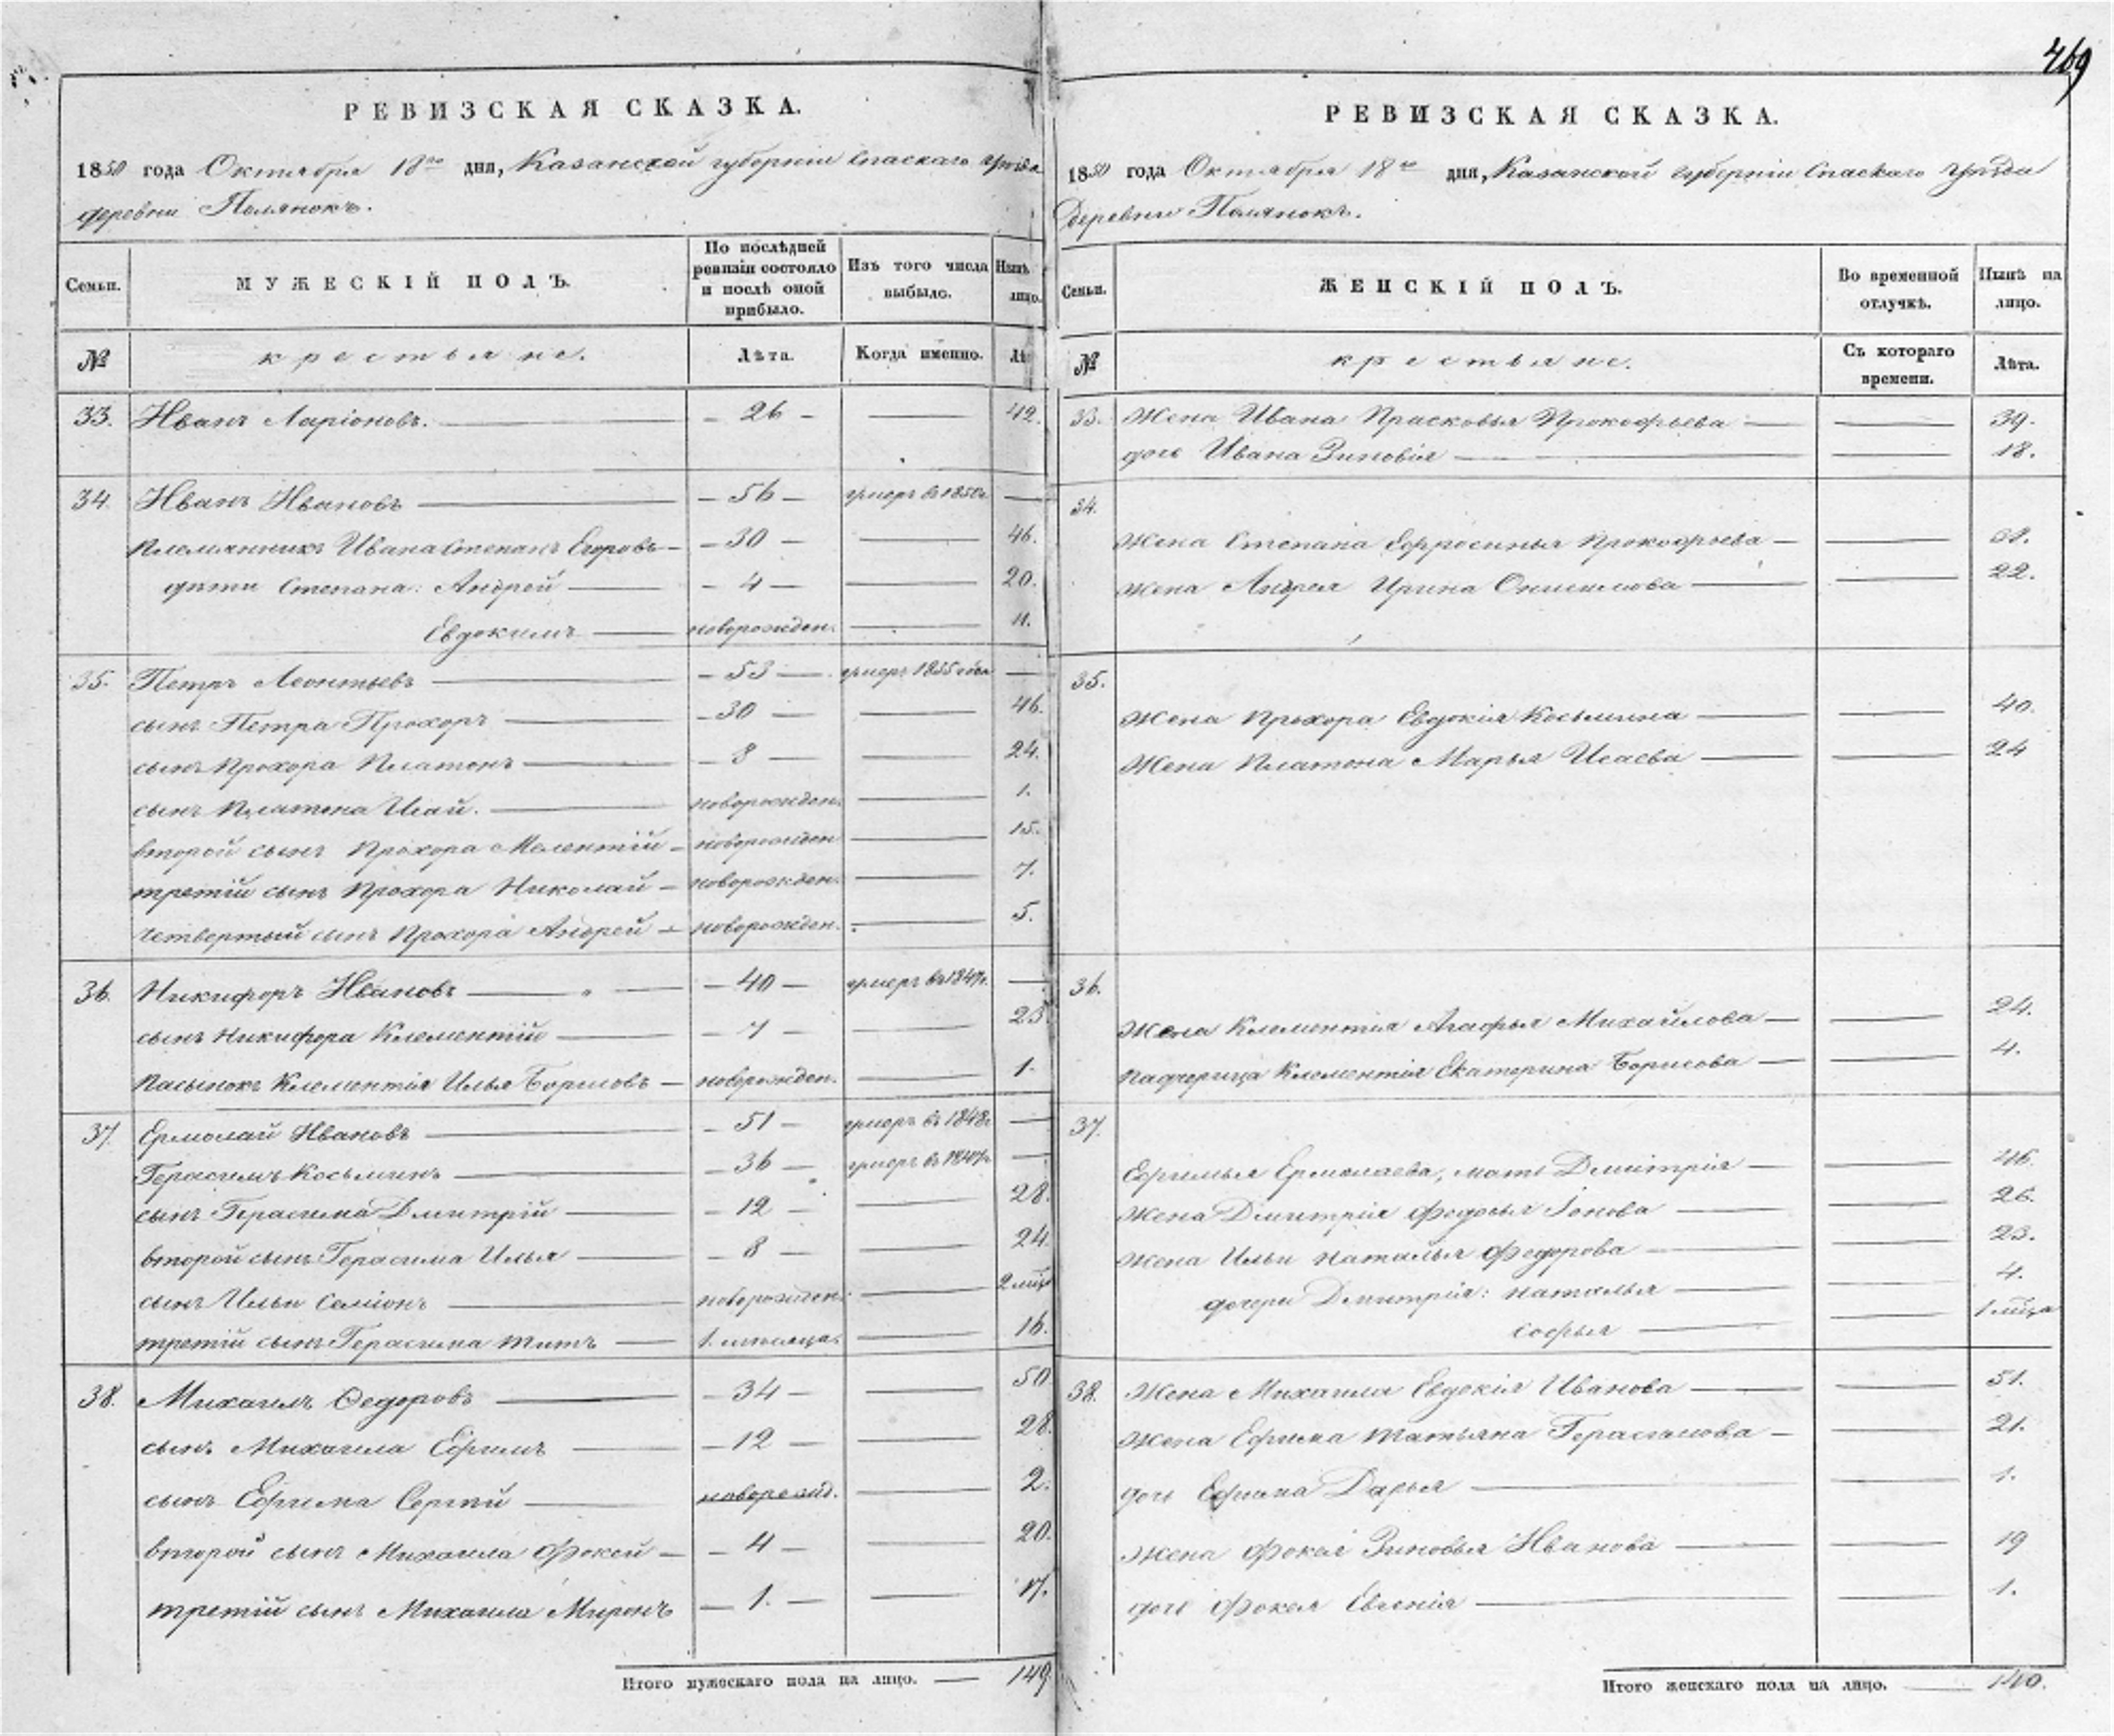 469
РЕВИЗСКАЯ СКАЗКА.
1850 года Октября 18го дня, Казанской губерніи Спаскаго уѣзда
деревни Полянокъ.
Семьи. МУЖЕСКІЙ ПОЛЪ. По послѣдней ревизіи состояло и послѣ оной прибыло. Изъ того числа выбыло. Нынѣ лицо.
№ крестьяне. Лѣта. Когда именно. Лѣ
33. Иванъ Ларіоновъ. — 26 — — 42.
34. Иванъ Ивановъ — 56 — умеръ въ 1850г. —
Племянникъ Ивана Степанъ Егоровъ — 30 — — 46.
дѣти Степана: Андрей — 4 — — 20.
Евдокимъ — новорожден. — 11.
35. Петръ Леонтьевъ — 53 — умеръ —
сынъ Петра Прохоръ — 30 — — 46.
сынъ Прохора Платонъ — 8 — — 24.
сынъ Платона Исай. — новорожден. — 1.
второй сынъ Прохора Мелентій — новорожден — 15.
третій сынъ Прохора Николай — новорожден. — 7.
четвертый сынъ Прохора Андрей — новорожден. — 5.
36. Никифоръ Ивановъ — 40 — умеръ въ 1847г. —
сынъ Никифора Клементій — 7 — — 23
Пасынокъ Клементія Илья Борисовъ — новорожден. — 1.
37. Ермолай Ивановъ — 51 — умеръ въ 1848г. —
Герасимъ Косьминъ — 36 — умеръ въ 1847г. —
сынъ Герасима Дмитрій — 12 — — 28.
второй сынъ Герасима Илья — 8 — — 24.
сынъ Ильи Семіонъ — новорожден. — 2 мѣс
третій сынъ Герасима Титъ — 1. мѣсяца. — 16.
38. Михаилъ Федоровъ — 34 — — 50
сынъ Михаила Ефимъ — 12 — — 28.
сынъ Ефима Сергѣй — новорожд. — 2.
второй сынъ Михаила Фокей — 4 — — 20.
третій сынъ Михаила Миронъ — 1. — — 17.
Итого мужескаго пола на лицо. — 149.
РЕВИЗСКАЯ СКАЗКА.
1850 года Октября 18го дня, Казанской губерніи Спаскаго уѣзда
деревни Полянокъ.
Семьи. ЖЕНСКІЙ ПОЛЪ. Во временной отлучкѣ. Нынѣ на лицо.
№ крестьяне. Съ котораго времени. Лѣта.
33. Жена Ивана Прасковья Прокофьева — — 39.
дочь Ивана Зиновія — — 18.
34.
Жена Степана Ефросинья Прокофьева — —
жена Андрея Ирина Онисимова — — 22.
35.
Жена Прохора Евдокія Косьмина — — 40.
Жена Платона Марья Исаева — — 24
36.
Жена Клементія Агафья Михайлова — — 24.
Падчерица Клементія Екатерина Борисова — — 4.
37.
Ефимья Ермолаева, мать Дмитрія — — 46.
жена Дмитрія Федосья Іонова — — 26.
жена Ильи Наталья Федорова — — 23.
дочери Дмитрія: Наталья — — 4.
Софья — — 1 мѣсца
38. Жена Михаила Евдокія Иванова — — 51.
жена Ефима Татьяна Герасимова — — 21.
дочь Ефима Дарья — — 1.
Жена Фокея Зиновья Иванова — — 19
дочь Фокея Евгенія — — 1.
Итого женскаго пола на лицо. — 140.